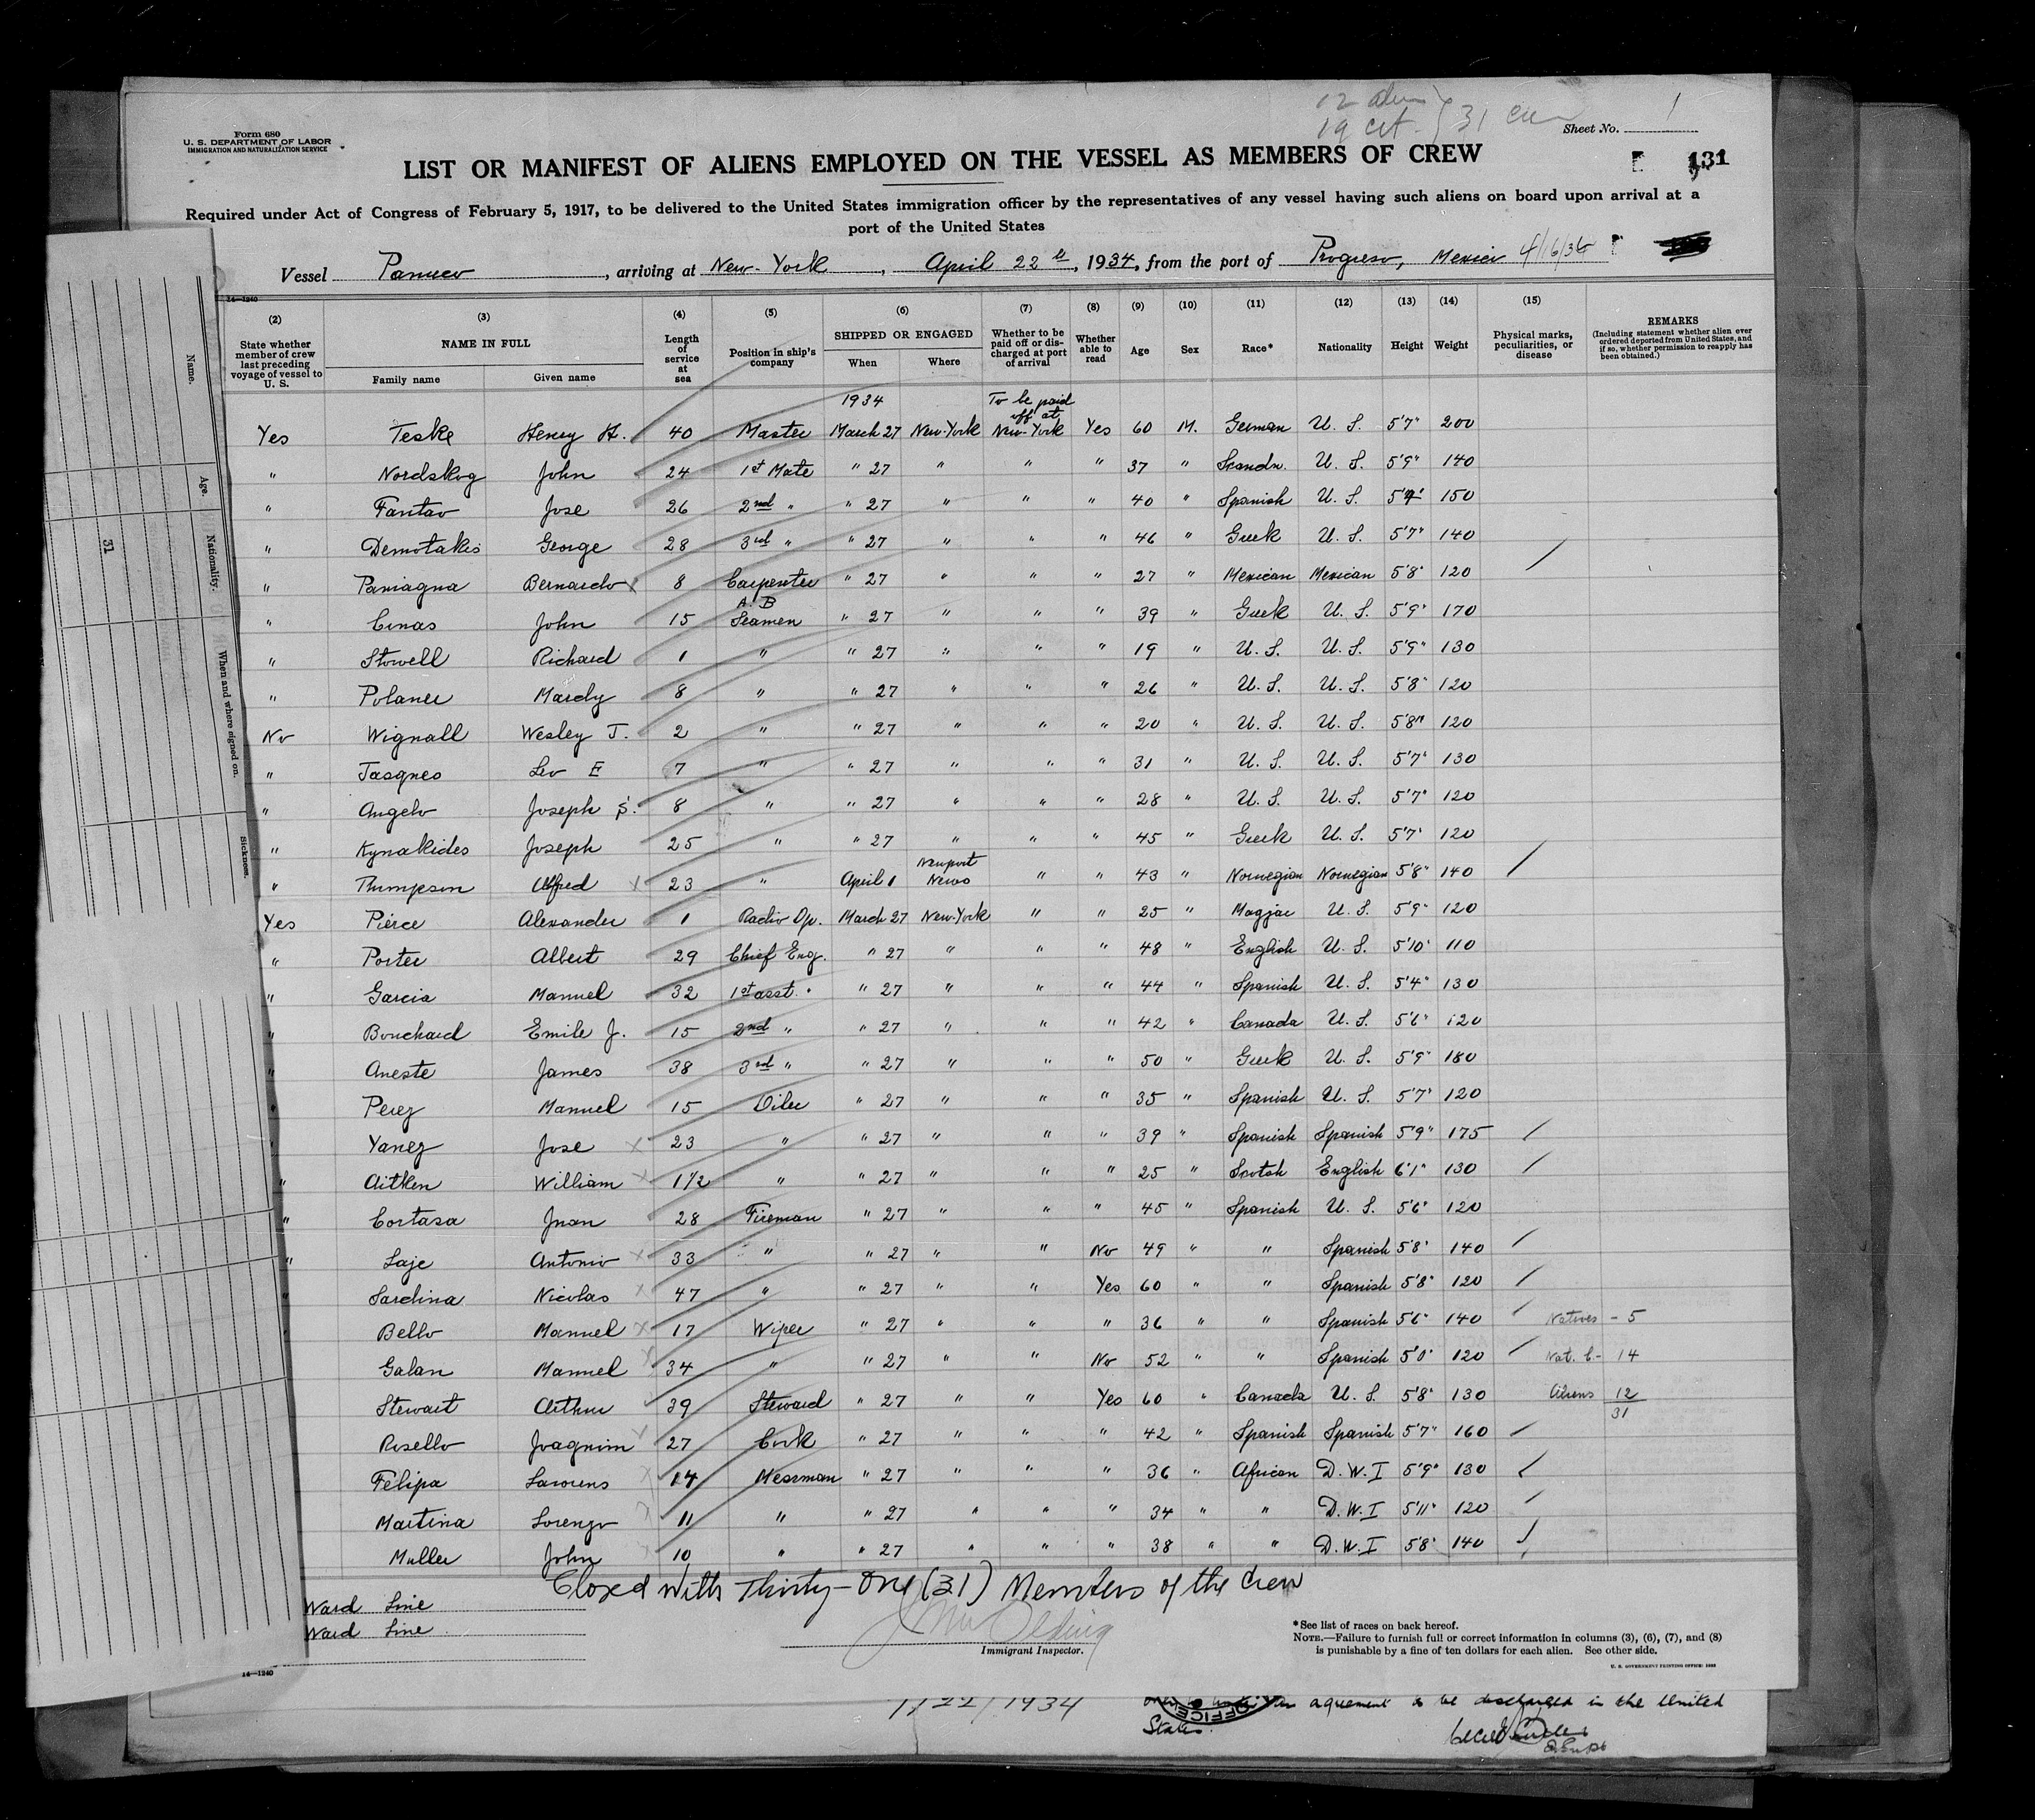 12 alien
19 cit. } 31 crew
Form 680
U. S. DEPARTMENT OF LABOR
IMMIGRATION AND NATURALIZATION SERVICE
Sheet No. 1
LIST OR MANIFEST OF ALIENS EMPLOYED ON THE VESSEL AS MEMBERS OF CREW
131
Required under Act of Congress of February 5, 1917, to be delivered to the United States immigration officer by the representatives of any vessel having such aliens on board upon arrival at a
port of the United States
Vessel Panuco, arriving at New-York, April 22, 1934, from the port of Progreso, Mexico
14—1240
(2) (3) (4) (5) (6) (7) (8) (9) (10) (11) (12) (13) (14) (15)
State whether member of crew last preceding voyage of vessel to U. S.
NAME IN FULL
Family name Given name
Length of service at sea
Position in ship's company
SHIPPED OR ENGAGED
When Where
Whether to be paid off or discharged at port of arrival
Whether able to read
Age Sex Race* Nationality Height Weight
Physical marks, peculiarities, or disease
REMARKS
(Including statement whether alien ever ordered deported from United States, and if so, whether permission to reapply has been obtained.)
1934 To be paid off at
Yes Teske Henry H. 40 Master March 27 New-York New-York Yes 60 M. German U. S. 5'7" 200
" Nordskog John 24 1st Mate " 27 " " " 37 " Scandn. U. S. 5'9" 140
" Fantao Jose 26 2nd " " 27 " " " 40 " Spanish U. S. 150
" Demotakis George 28 3rd " " 27 " " " 46 " Greek U. S. 5'7" 140
" Paniagna Bernardo x 8 Carpenter " 27 " " " 27 " Mexican Mexican 5'8" 120 /
A. B
" Cinas John 15 Seamen " 27 " " " 39 " Greek U. S. 5'9" 170
" Stowell Richard 1 " " 27 " " " 19 " U. S. U. S. 5'9" 130
" Polaner Mardy 8 " " 27 " " " 26 " U. S. U. S. 5'8" 120
No Wignall Wesley J. 2 " " 27 " " " 20 " U. S. U. S. 5'8" 120
" Tasgnes Leo E 7 " " 27 " " " 31 " U. S. U. S. 5'7" 130
" Angelo Joseph S. 8 " " 27 " " " 28 " U. S. U. S. 5'7" 120
" Kynakides Joseph 25 " " 27 " " " 45 " Greek U. S. 5'7" 120
" Thompson Alfred x 23 " April 1 Newport News " " 43 " Norwegian Norwegian 5'8" 140 /
Yes Pierce Alexander 1 Radio Op. March 27 New-York " " 25 " Magjar U. S. 5'9" 120
" Porter Albert 29 Chief Eng. " 27 " " " 48 " English U. S. 5'10" 110
" Garcia Manuel 32 1st asst. " " 27 " " " 44 " Spanish U. S. 5'4" 130
" Bouchard Emile J. 15 2nd " " 27 " " " 42 " Canada U. S. 5'6" 120
" Aneste James 38 3rd " " 27 " " " 50 " Greek U. S. 5'9" 180
" Perez Manuel 15 Oiler " 27 " " " 35 " Spanish U. S. 5'7" 120
" Yanez Jose x 23 " " 27 " " " 39 " Spanish Spanish 5'9" 175 /
" Aitken William x 1 1/2 " " 27 " " " 25 " Scotch English 6'1" 130 /
" Cortasa Juan 28 Fireman " 27 " " " 45 " Spanish U. S. 5'6" 120
" Laje Antonio x 33 " " 27 " " No 49 " " Spanish 5'8" 140 /
" Sardina Nicolas x 47 " " 27 " " Yes 60 " " Spanish 5'8" 120 /
" Bello Manuel x 17 Wiper " 27 " " " 36 " " Spanish 5'6" 140 / Natives - 5
Galan Manuel x 34 " " 27 " " No 52 " " Spanish 5'0" 120 / Nat. C - 14
Stewart Arthur 39 Steward " 27 " " Yes 60 " Canada U. S. 5'8" 130 Aliens 12
31
Rosello Joagnim x 27 Cook " 27 " " " 42 " Spanish Spanish 5'7" 160 /
Felipa Lawrens x 14 Messman " 27 " " " 36 " African D. W. I 5'9" 130 /
Martina Lorenzo x 11 " " 27 " " " 34 " " D. W. I 5'11" 120 /
Muller John x 10 " " 27 " " " 38 " " D. W. I 5'8" 140 /
Closed with Thirty-One (31) Members of the Crew
Ward Line
Ward Line
Immigrant Inspector.
*See list of races on back hereof.
NOTE.—Failure to furnish full or correct information in columns (3), (6), (7), and (8)
is punishable by a fine of ten dollars for each alien. See other side.
U. S. GOVERNMENT PRINTING OFFICE
14—1240
Name.
Age.
Nationality.
31
When and where signed on.
Sickness.
22/1934
agreement to be discharged in the United
States.
OFFICE